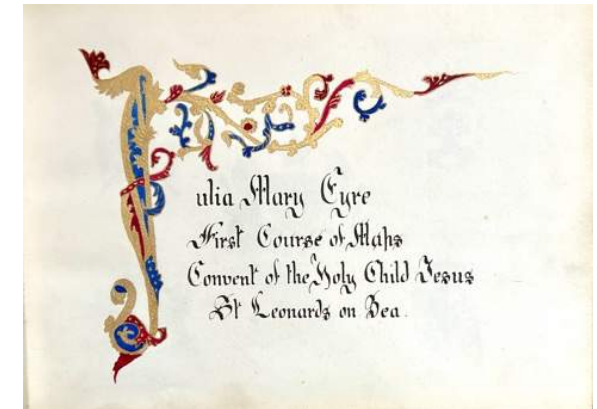 Julia Mary Eyre
First Course of Maps
Convent of the Holy Child Jesus
St Leonards on Sea.